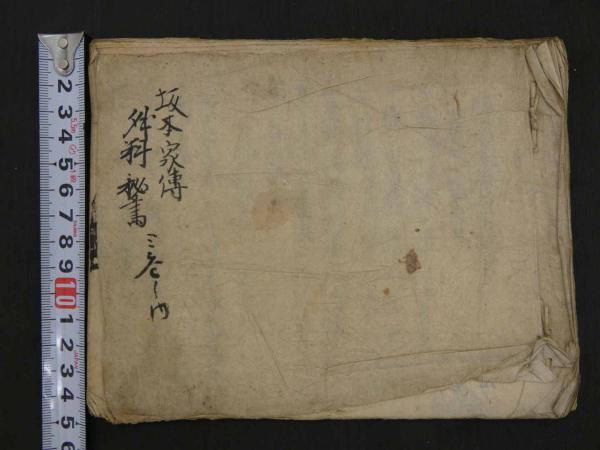 坂本家傳
外科秘書 三巻之内
2 3 4 5 6 7 8 9 10 1 2 3 4 5 6